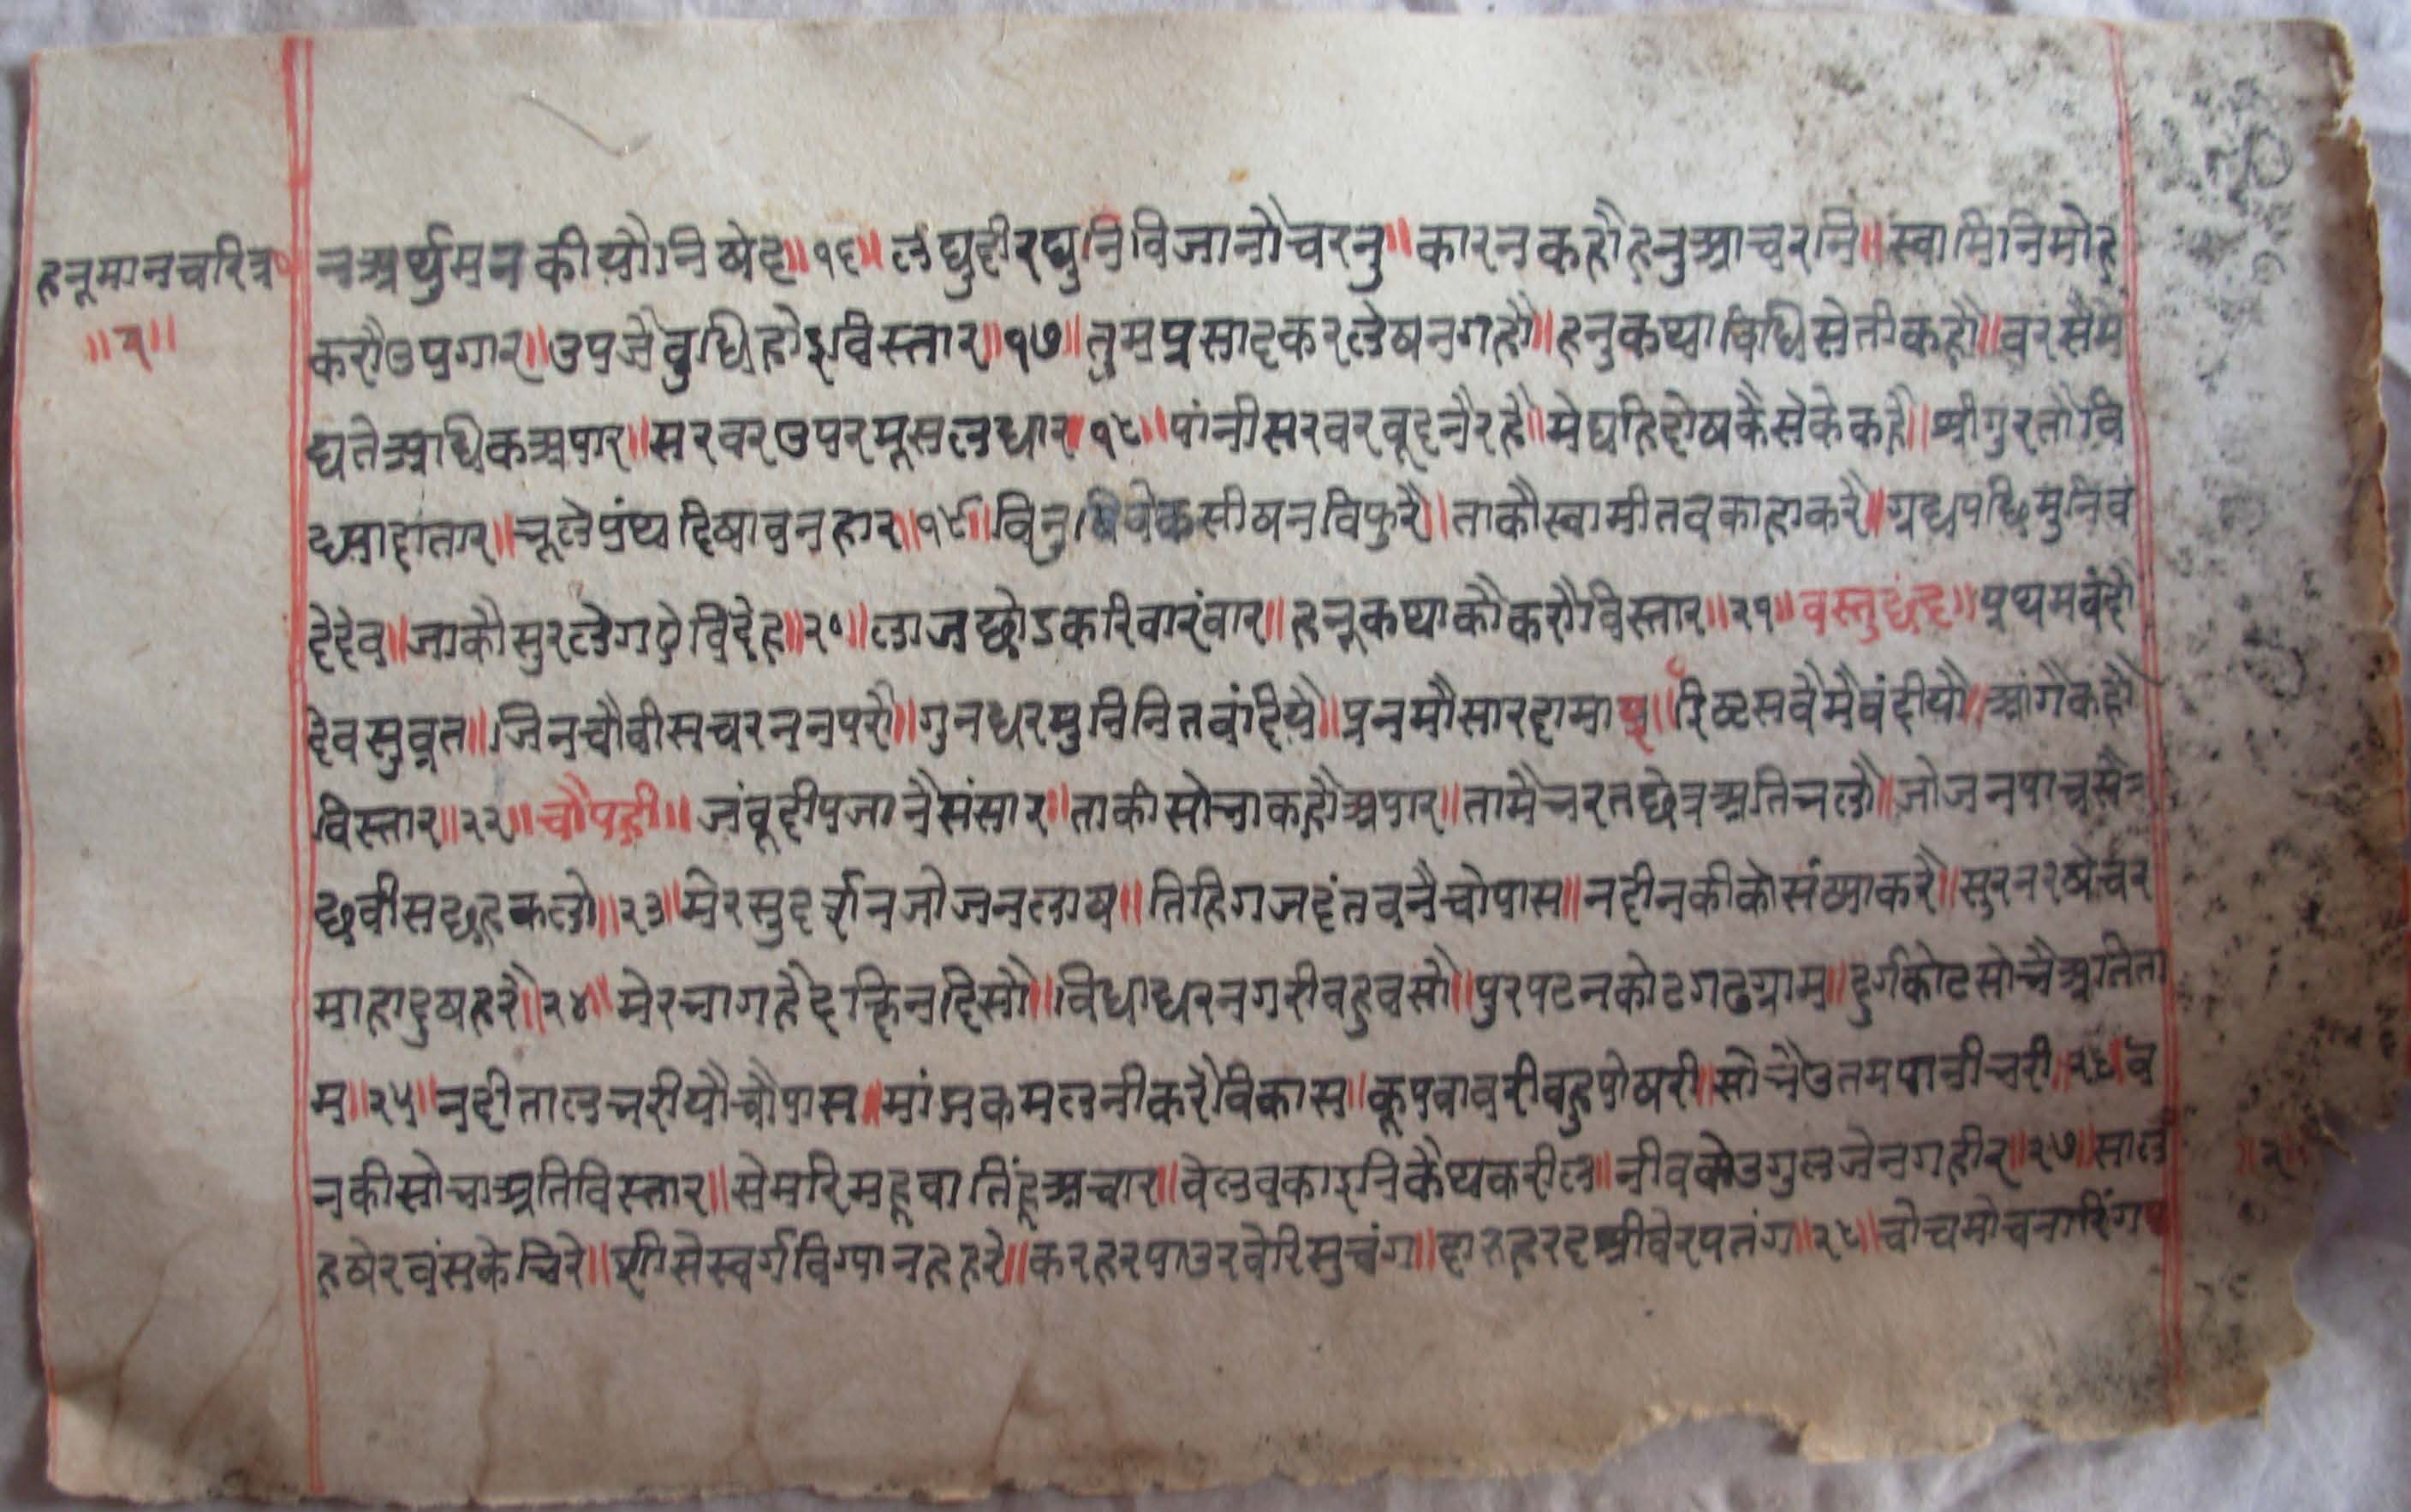 हनूमानचरित्र
॥२॥
नअर्थुमनकीयौनिषेद॥१६॥लघुदीरघुनविजानौचरनु॥कारनकहौहनुआचरनि॥स्वामिनिमोह
करौउपगार॥उपजैवुधिहोइविस्तार॥१७॥तुमप्रसादकरलेषनगहौ॥हनुकथाविधिसेतीकहौ॥वरसैमे
घतेअधिकअपार॥सरवरउपरमूसलधार॥१८॥पांनीसरवरवूदनैरहै॥मेघहिदोषकैसेकेकहै॥श्रीगुरतौवि
द्यादातार॥भूलेपंथदिषावनहार॥१९॥विनुविवेकसीषनविफुरै॥ताकौस्वामीतवकाहाकरै॥ग्रधपधिमुनिवं
देदेव॥जाकौसुरलेगऐविदेह॥२०॥लाजछोडकरिवारंवार॥हनूकथाकौकरौविस्तार॥२१॥वस्तुछंद॥प्रथमवंदौ
देवसुव्रत॥जिनचौवीसचरननपरौ॥गुनधरमुनिनितवांदियै॥प्रनमौसारदामाय॥रिष्टसवैमैवंदीयौ॥आंगैकहौ
विस्तार॥२२॥चौपही॥जंवूदीपजानैसंसार॥ताकीसोभाकहौअपार॥तामैभरतछेत्रअतिभलौ॥जोजनपाचसै
छवीसछहकलो॥२३॥मेरसुदर्शनजोजनलाष॥तिहिगजदंतवनैचोपास॥नदीनकीकोसंष्याकरै॥सुरनरषेचर
माहादुषहरै॥२४॥मेरभागहैदक्षिनदिसौ॥विद्याधरनगरीवहुवसौ॥पुरपटनकोटगढग्राम॥दुर्गकोटसोभैअतिता
म॥२५॥नदीतालभरीयौचौपास॥मांझकमलनीकरैविकास॥कूपवावरीवहुपोषरी॥सोभैउतमपानीभरी॥२६॥व
नकीसोभाअतिविस्तार॥सेमरिमहूवातिंहूअचार॥वेलवकाइनिकैथकरील॥नीवकोउगुलजेनगहीर॥२७॥साल
हषेरवंसकेचिरे॥सीसेस्वर्गविग्पानहहरे॥करहरपाउरवेरिसुचंग॥दारुहरदश्रीवेरपतंग॥२८॥चोचमोचनारिंग
॥२॥